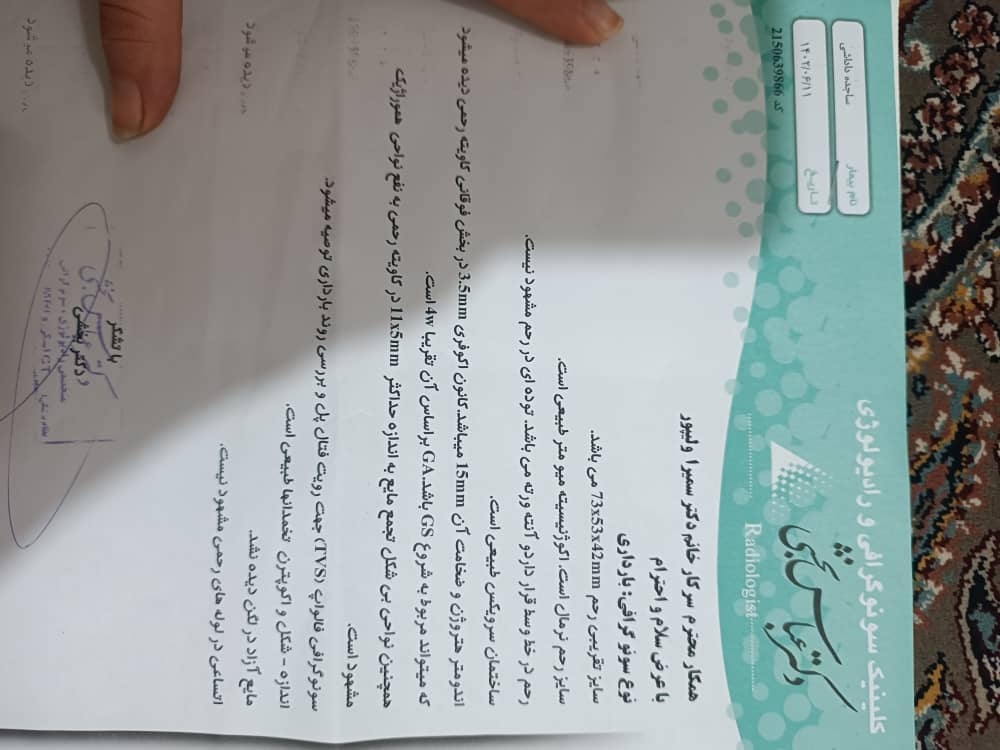 کلینیک سونوگرافی و رادیولوژی
دکتر عباس بخشی
Radiologist
نام بیمار ساجده داداشی
تاریخ ۱۴۰۲/۰۶/۱۱
کد 2150639866
همکار محترم سرکار خانم دکتر سمیرا ولیپور
با عرض سلام و احترام
نوع سونوگرافی: بارداری
سایز تقریبی رحم 73x53x42mm می باشد.
سایز رحم نرمال است. اکوژنیسیته میومتر طبیعی است.
رحم در خط وسط قرار دارد و آنته ورته می باشد. توده ای در رحم مشهود نیست.
ساختمان سرویکس طبیعی است.
اندومتر هتروژن و ضخامت آن 15mm میباشد. کانون اکوفری 3.5mm در بخش فوقانی کاویته رحمی دیده میشود
که میتواند مربوط به شروع GS باشد. GA براساس آن تقریبا 4w است.
همچنین نواحی بی شکل تجمع مایع به اندازه حداکثر 11x5mm در کاویته رحمی به نفع نواحی هموراژیک
مشهود است.
سونوگرافی فالواپ (TVS) جهت رویت فتال پل و بررسی روند بارداری توصیه میشود.
اندازه - شکل و اکوپترن تخمدانها طبیعی است.
مایع آزاد در لگن دیده نشد.
اتساعی در لوله های رحمی مشهود نیست.
با تشکر
دکتر بخشی
دیده می شود
دیده می شود